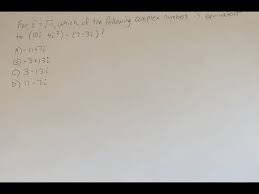 For i = √-1, which of the following complex numbers is equivalent
to (10i - 4i²) - (7 - 3i)?
A) -11+7i
B) -3+13i
C) 3-13i
D) 11-7i